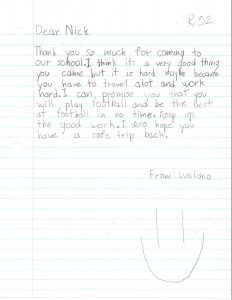 R52
Dear Nick
Thank you so much for coming to
our school. I think its a very good thing
you came but it is hard maybe because
you have to travel alot and work
hard. I can promise you that you
will play football and be the best
at football in no time. Keep up
the good work. I also hope you
have a safe trip back.
From: Luciano